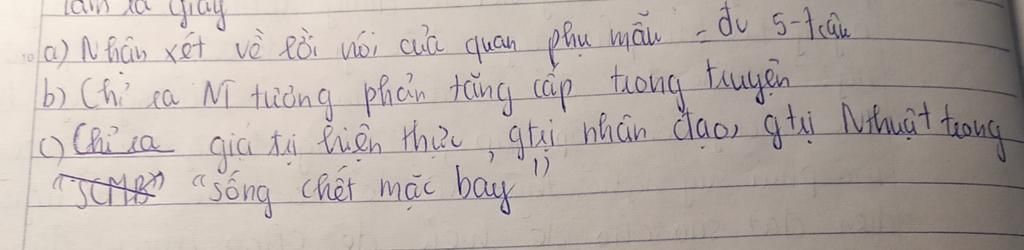 làm ra giấy
a) Nhận xét về lời nói của quan phụ mẫu = đv 5-7 câu
b) Chỉ ra NT tương phản tăng cấp trong truyện
c) Chỉ ra giá trị hiện thực, gtrị nhân đạo, gtrị Nthuật trong
"SCMB" "sống chết mặc bay"